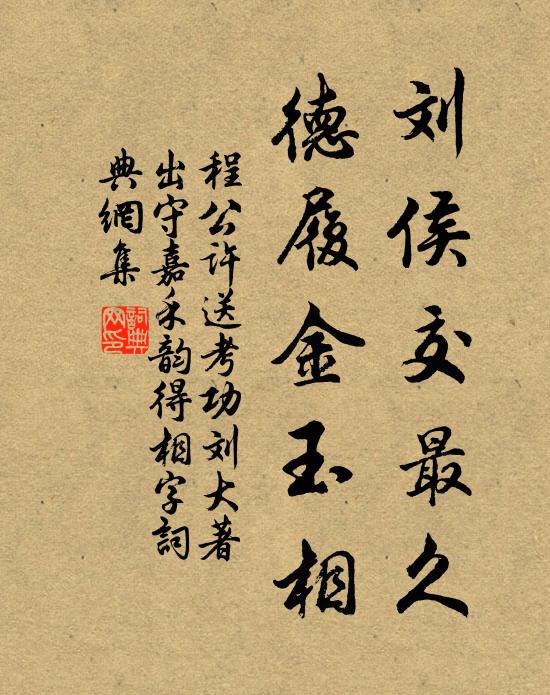 刘侯交最久
德履金玉相
程公许送考功刘大著
出守嘉禾韵得相字詞
典網集
詞典
网印